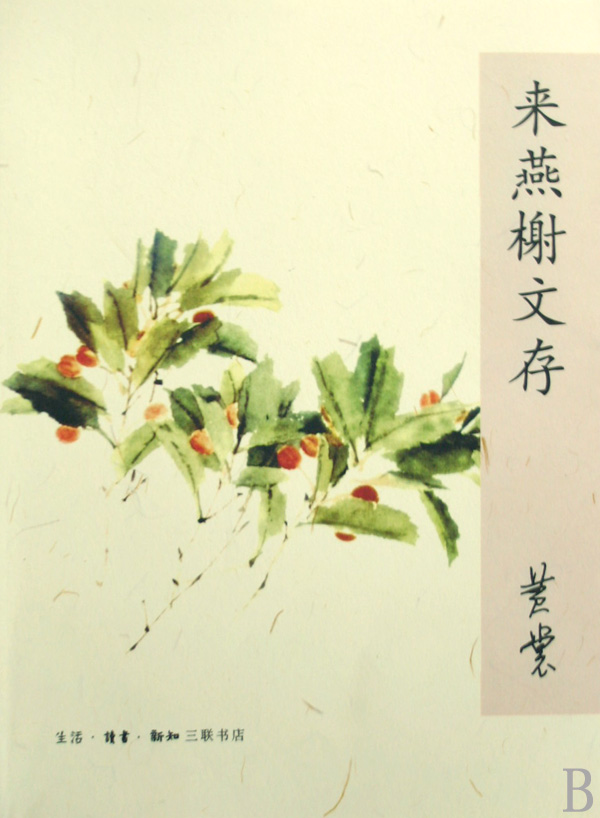 来燕榭文存
黄裳
生活·讀書·新知三联书店
B